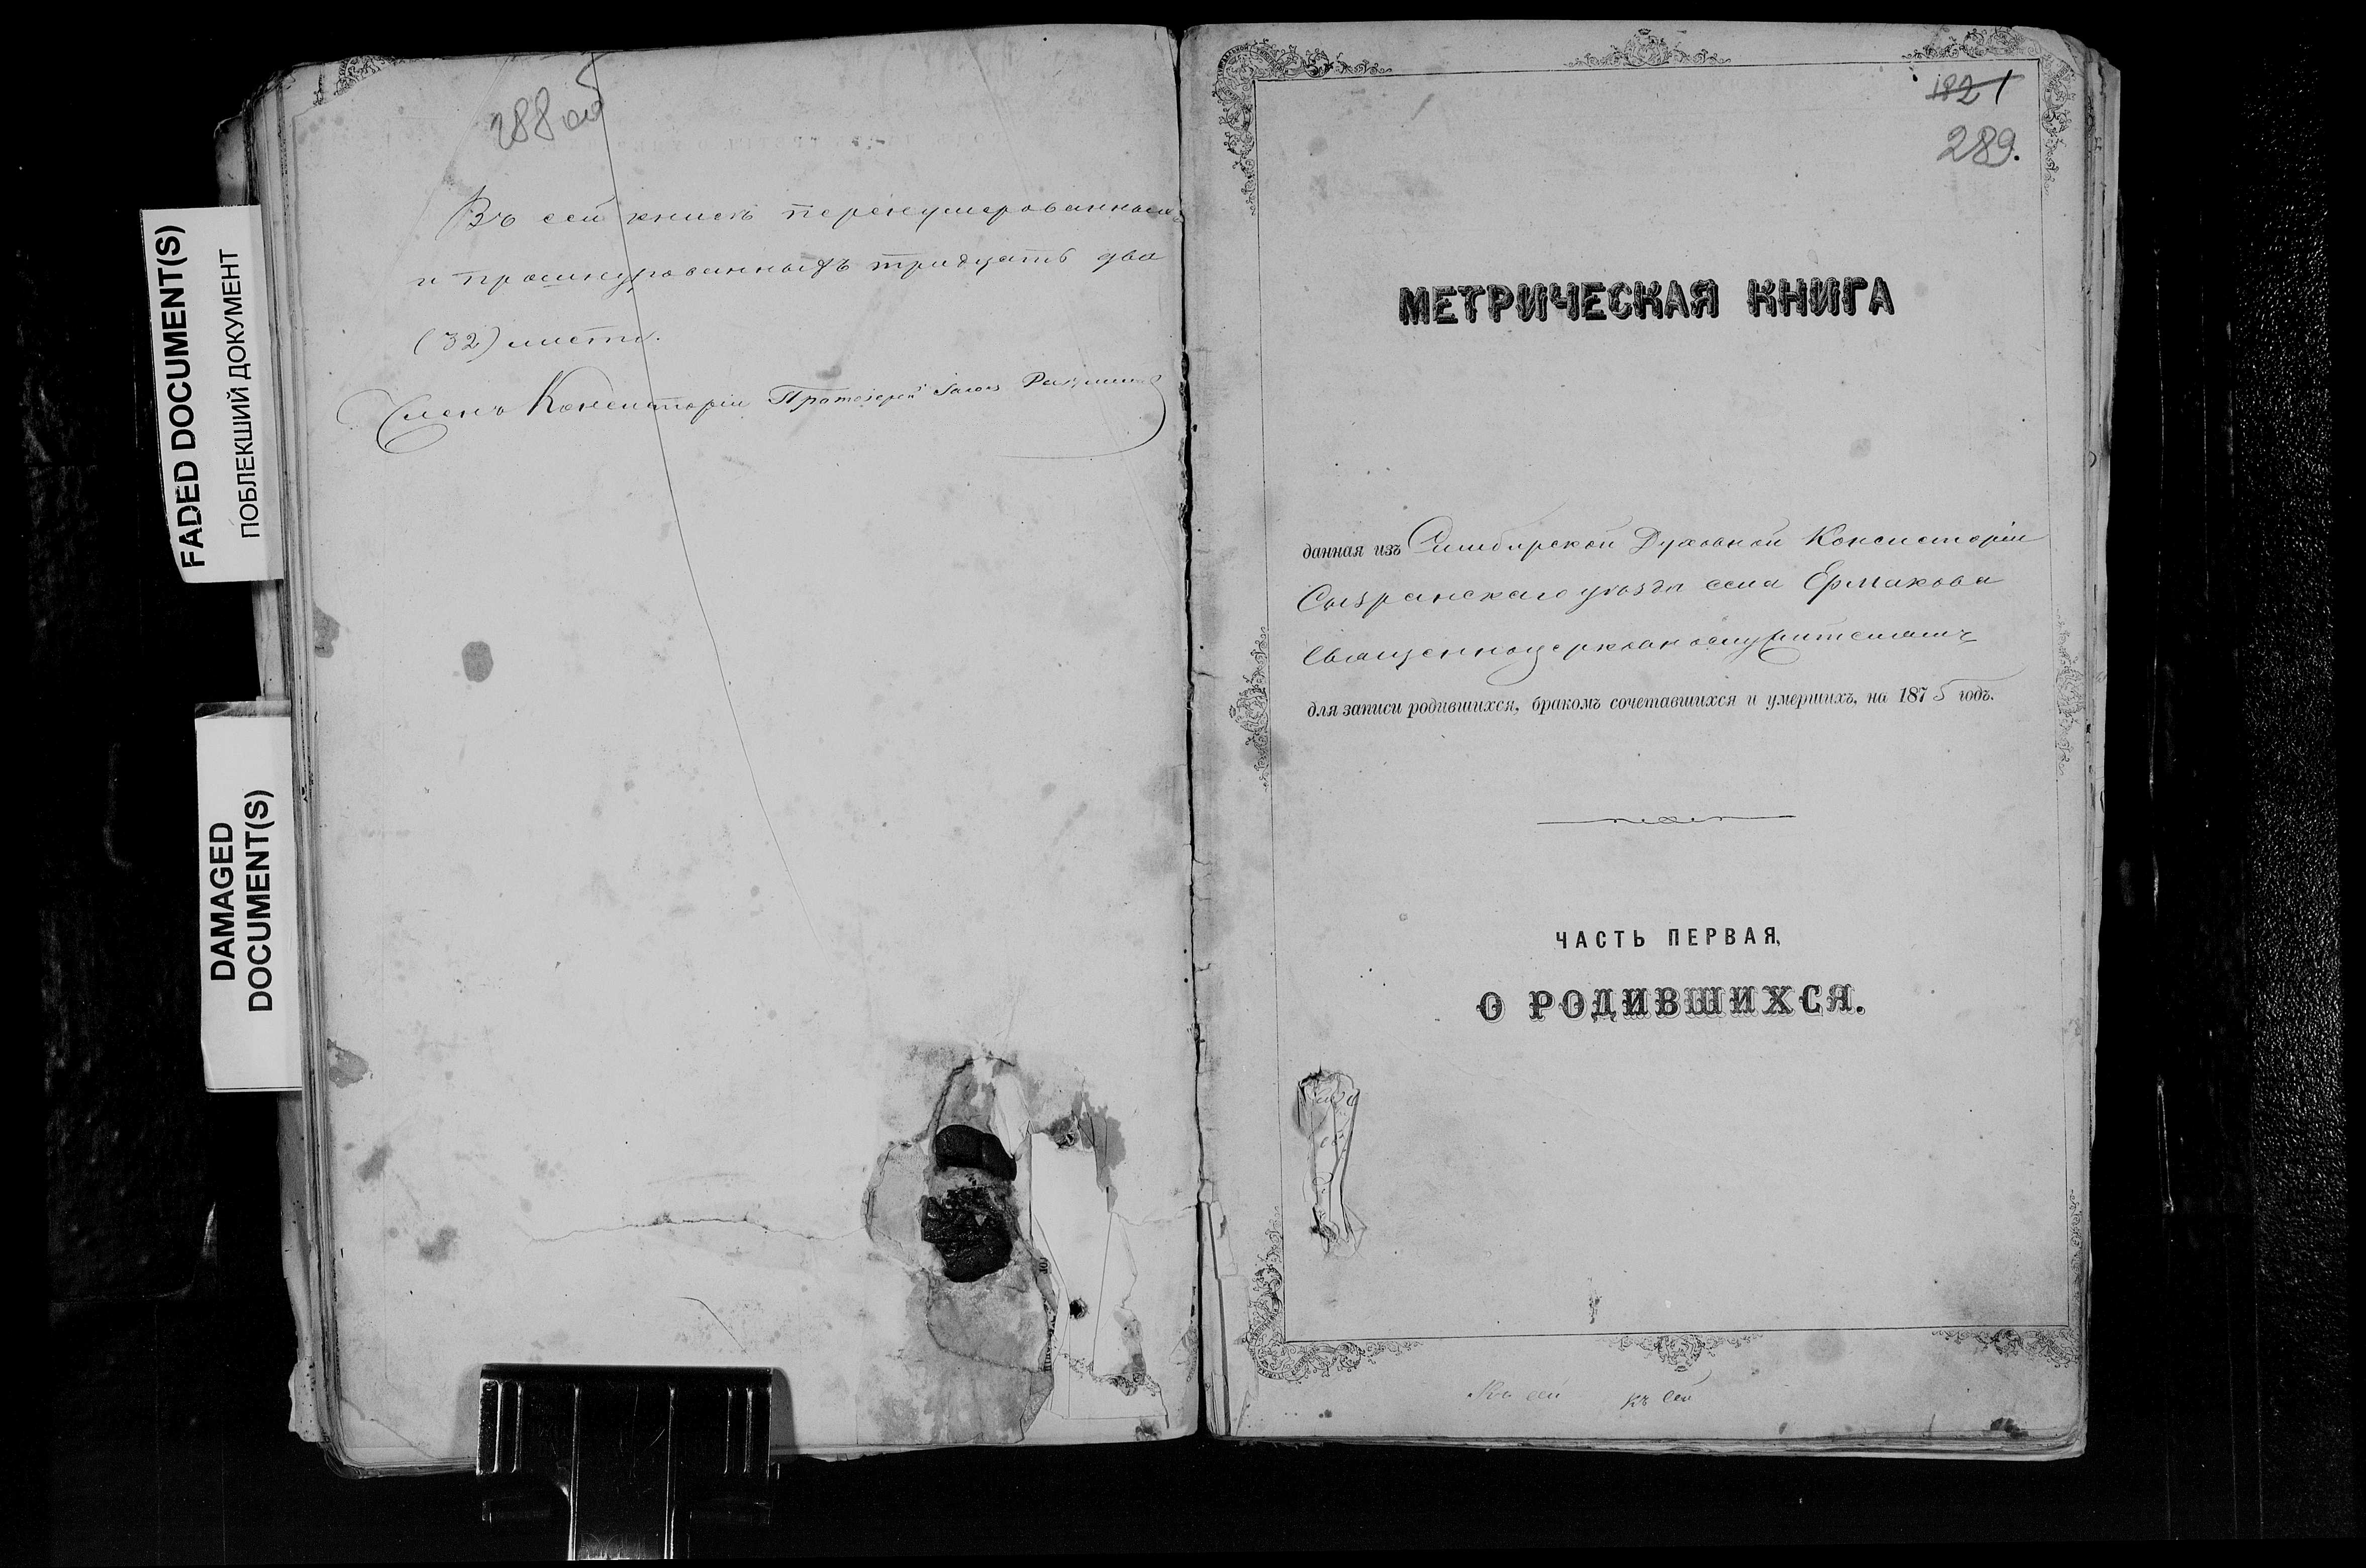 288 об
Въ сей книгѣ перенумерованныхъ
и прошнурованныхъ тридцать два
(32) листа.
Членъ Консисторіи Протоіерей
FADED DOCUMENT(S)
ПОБЛЕКШИЙ ДОКУМЕНТ
DAMAGED
DOCUMENT(S)
1821
289.
МЕТРИЧЕСКАЯ КНИГА
данная изъ Симбирской Духовной Консисторіи
Сызранскаго уѣзда села Ермакова
Священноцерковнослужителямъ
для записи родившихся, бракомъ сочетавшихся и умершихъ, на 1875 годъ.
ЧАСТЬ ПЕРВАЯ,
О РОДИВШИХСЯ.
Къ сей къ сей